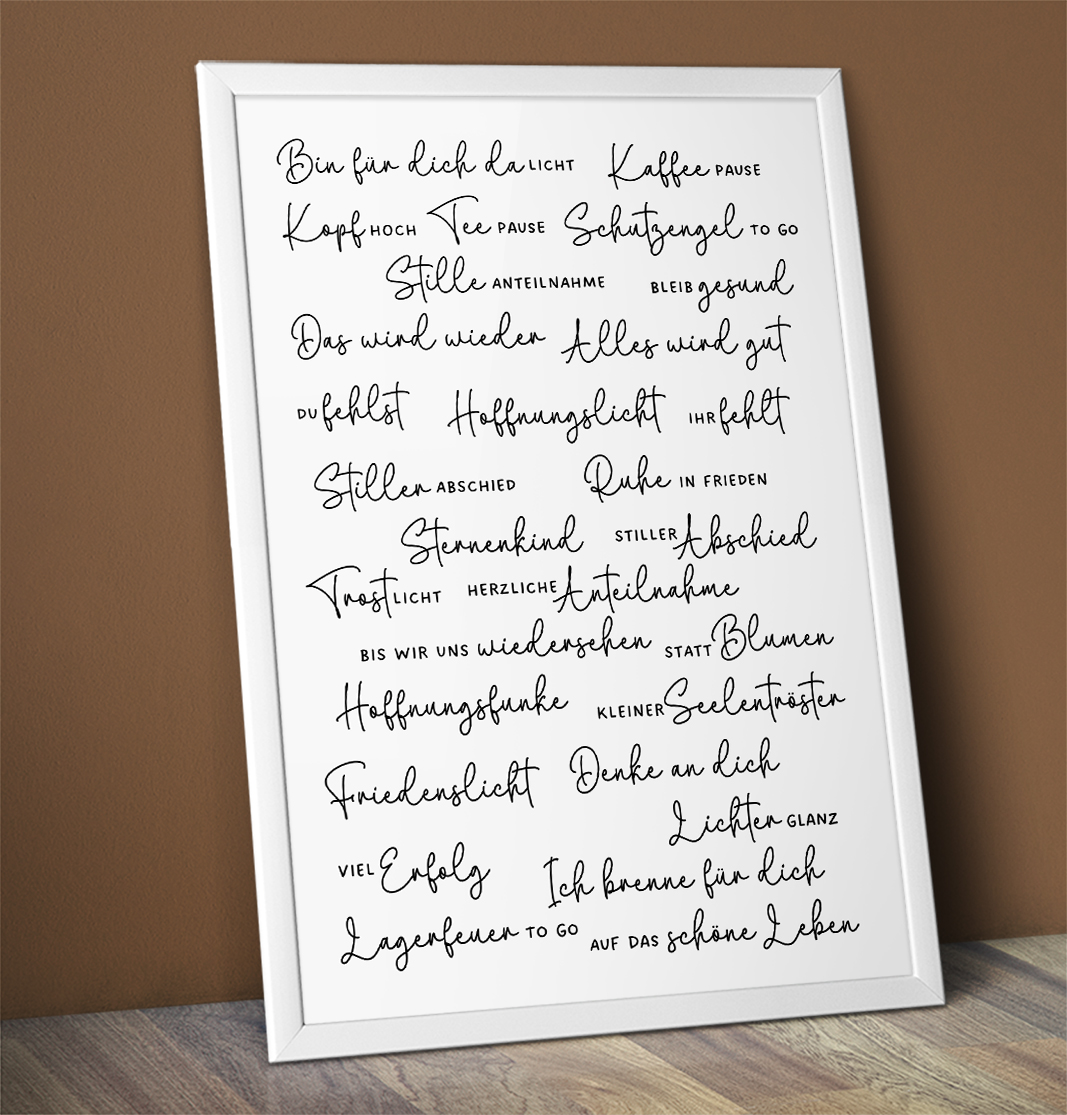 Bin für dich da LICHT Kaffee PAUSE
Kopf HOCH Tee PAUSE Schutzengel TO GO
Stille ANTEILNAHME BLEIB gesund
Das wird wieder Alles wird gut
DU fehlst Hoffnungslicht IHR fehlt
Stiller ABSCHIED Ruhe IN FRIEDEN
Sternenkind STILLER Abschied
Trost LICHT HERZLICHE Anteilnahme
BIS WIR UNS wiedersehen STATT Blumen
Hoffnungsfunke KLEINER Seelentröster
Friedenslicht Denke an dich
Lichter GLANZ
VIEL Erfolg Ich brenne für dich
Lagerfeuer TO GO AUF DAS schöne Leben